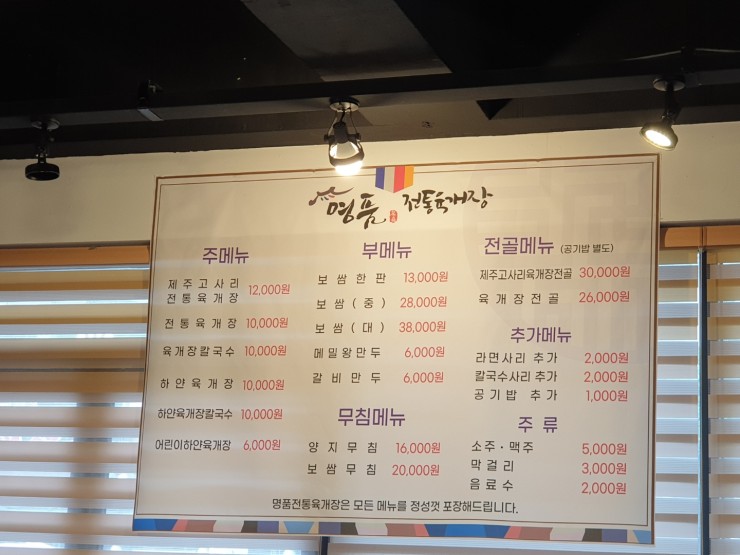 명품 전통육개장
주메뉴
제주고사리
전통육개장 12,000원
전통육개장 10,000원
육개장칼국수 10,000원
하얀육개장 10,000원
하얀육개장칼국수 10,000원
어린이하얀육개장 6,000원
부메뉴
보쌈한판 13,000원
보쌈(중) 28,000원
보쌈(대) 38,000원
메밀왕만두 6,000원
갈비만두 6,000원
무침메뉴
양지무침 16,000원
보쌈무침 20,000원
전골메뉴 (공기밥 별도)
제주고사리육개장전골 30,000원
육개장전골 26,000원
추가메뉴
라면사리 추가 2,000원
칼국수사리 추가 2,000원
공기밥 추가 1,000원
주류
소주·맥주 5,000원
막걸리 3,000원
음료수 2,000원
명품전통육개장은 모든 메뉴를 정성껏 포장해드립니다.